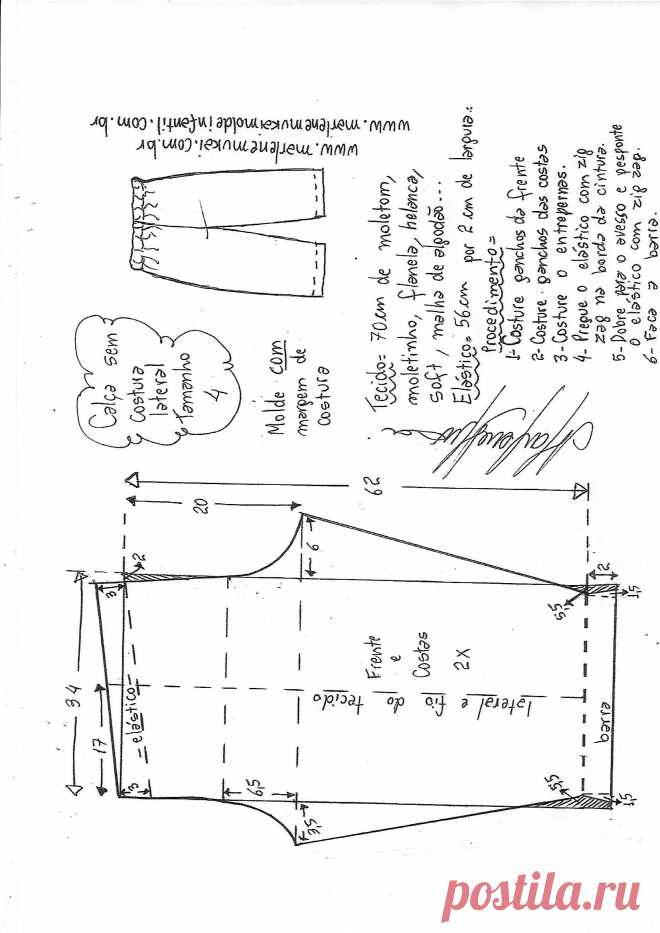 www.marlenemukai.com.br
www.marlenemukaimoldeinfantil.com.br
Calça sem
costura
lateral
Tamanho
4
Molde com
margem de
costura
Tecido= 70cm de moletom,
moletinho, flanela, helanca,
soft, malha de algodão...
Elástico= 56cm por 2cm de largura.
Procedimento=
1- Costure ganchos da frente
2- Costure ganchos das costas
3- Costure o entrepernas.
4- Pregue o elástico com zig
zag na borda da cintura.
5- Dobre para o avesso e pesponte
o elástico com zig zag.
6- Faça a barra.
62
20
2
3
6
2
1,5
5,5
34
17
=elástico=
Frente
e
Costas
2X
lateral e fio do tecido
barra
3
6,5
3,5
5,5
1,5
postila.ru